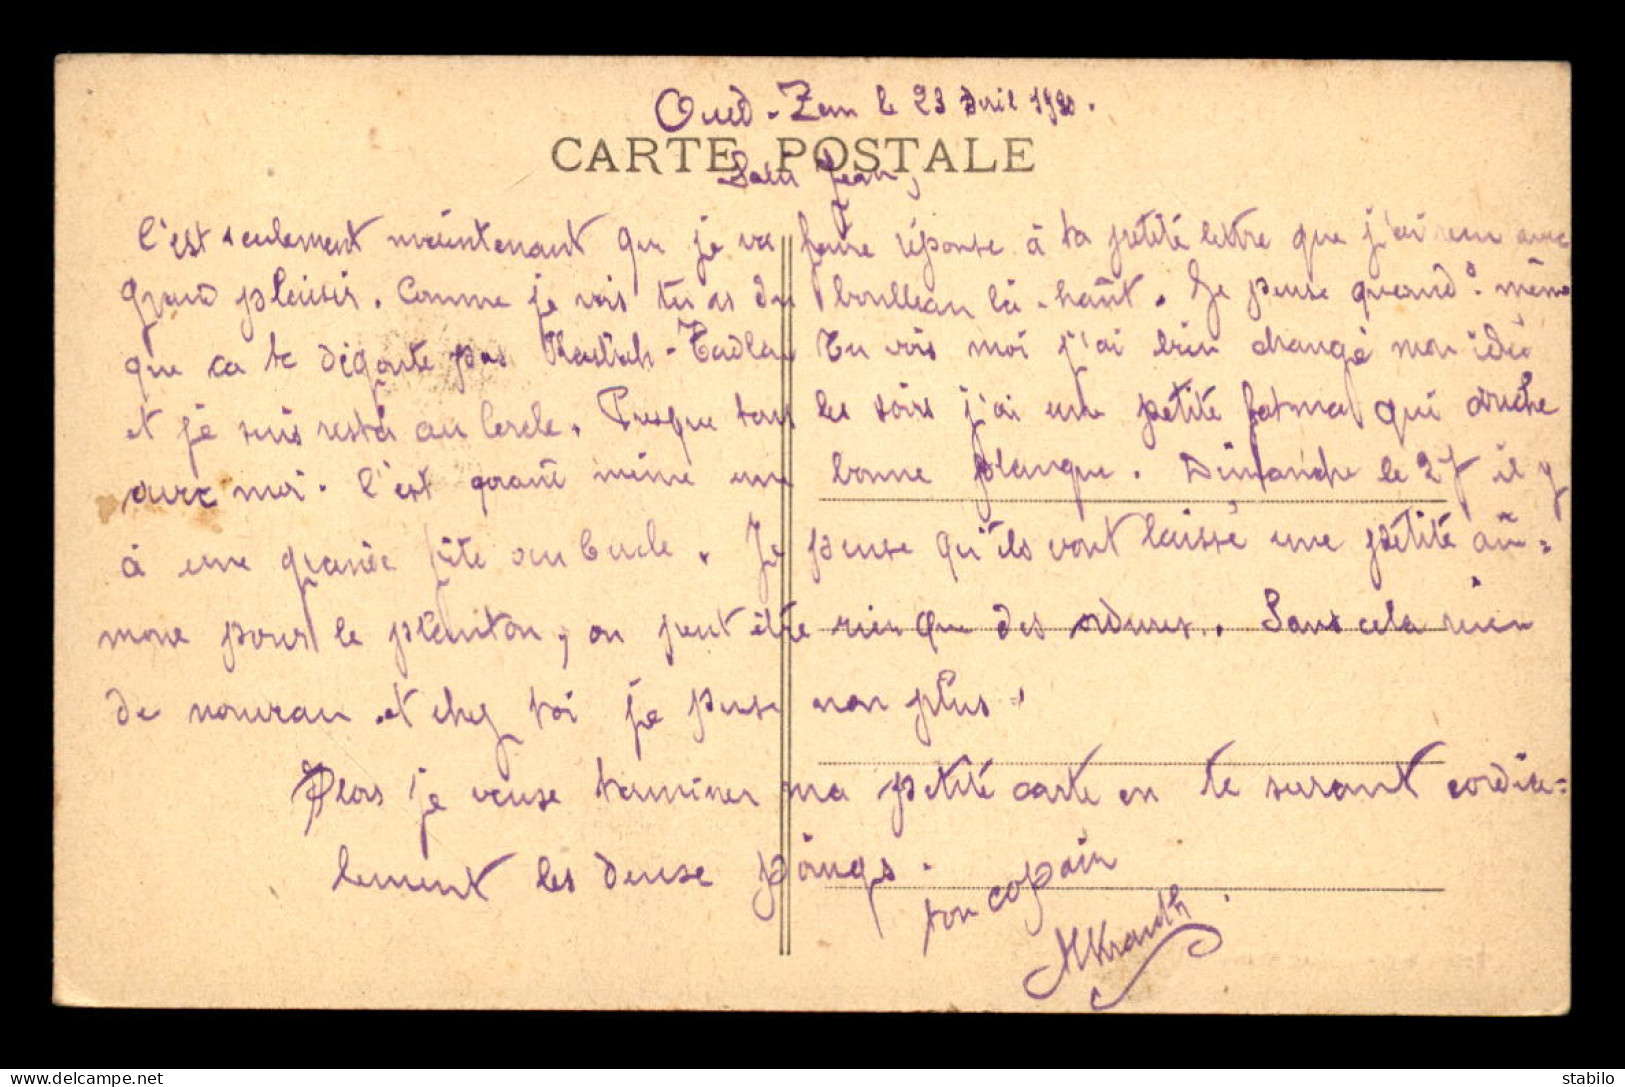 Oued-Zem le 23 Avril 1920.
CARTE POSTALE
Salu Jean,
C'est seulement maintenant que je va faire réponse à ta petite lettre que j'ai reçu avec
grand plaisir. Comme je vois tu as du boulleau là-haut. Je pense quand même
que ca te dégoute pas Kasbah-Tadla. Tu vois moi j'ai bien changé mon idée
et je suis resté au Cercle. Presque tous les soirs j'ai une petite fatma qui couche
avec moi. C'est quand même une bonne planque. Dimanche le 27 il y
à une grande fête au Cercle. Je pense qu'ils vont laissé une petite au-
mone pour le planton, ou peut être rien que des ordures. Sans cela rien
de nouveau et chez toi je pense non plus.
Alors je veuse terminer ma petite carte en te serrant cordia-
lement les deuse pings.
ton copain
Krauth
https://www.delcampe.net
stabilo